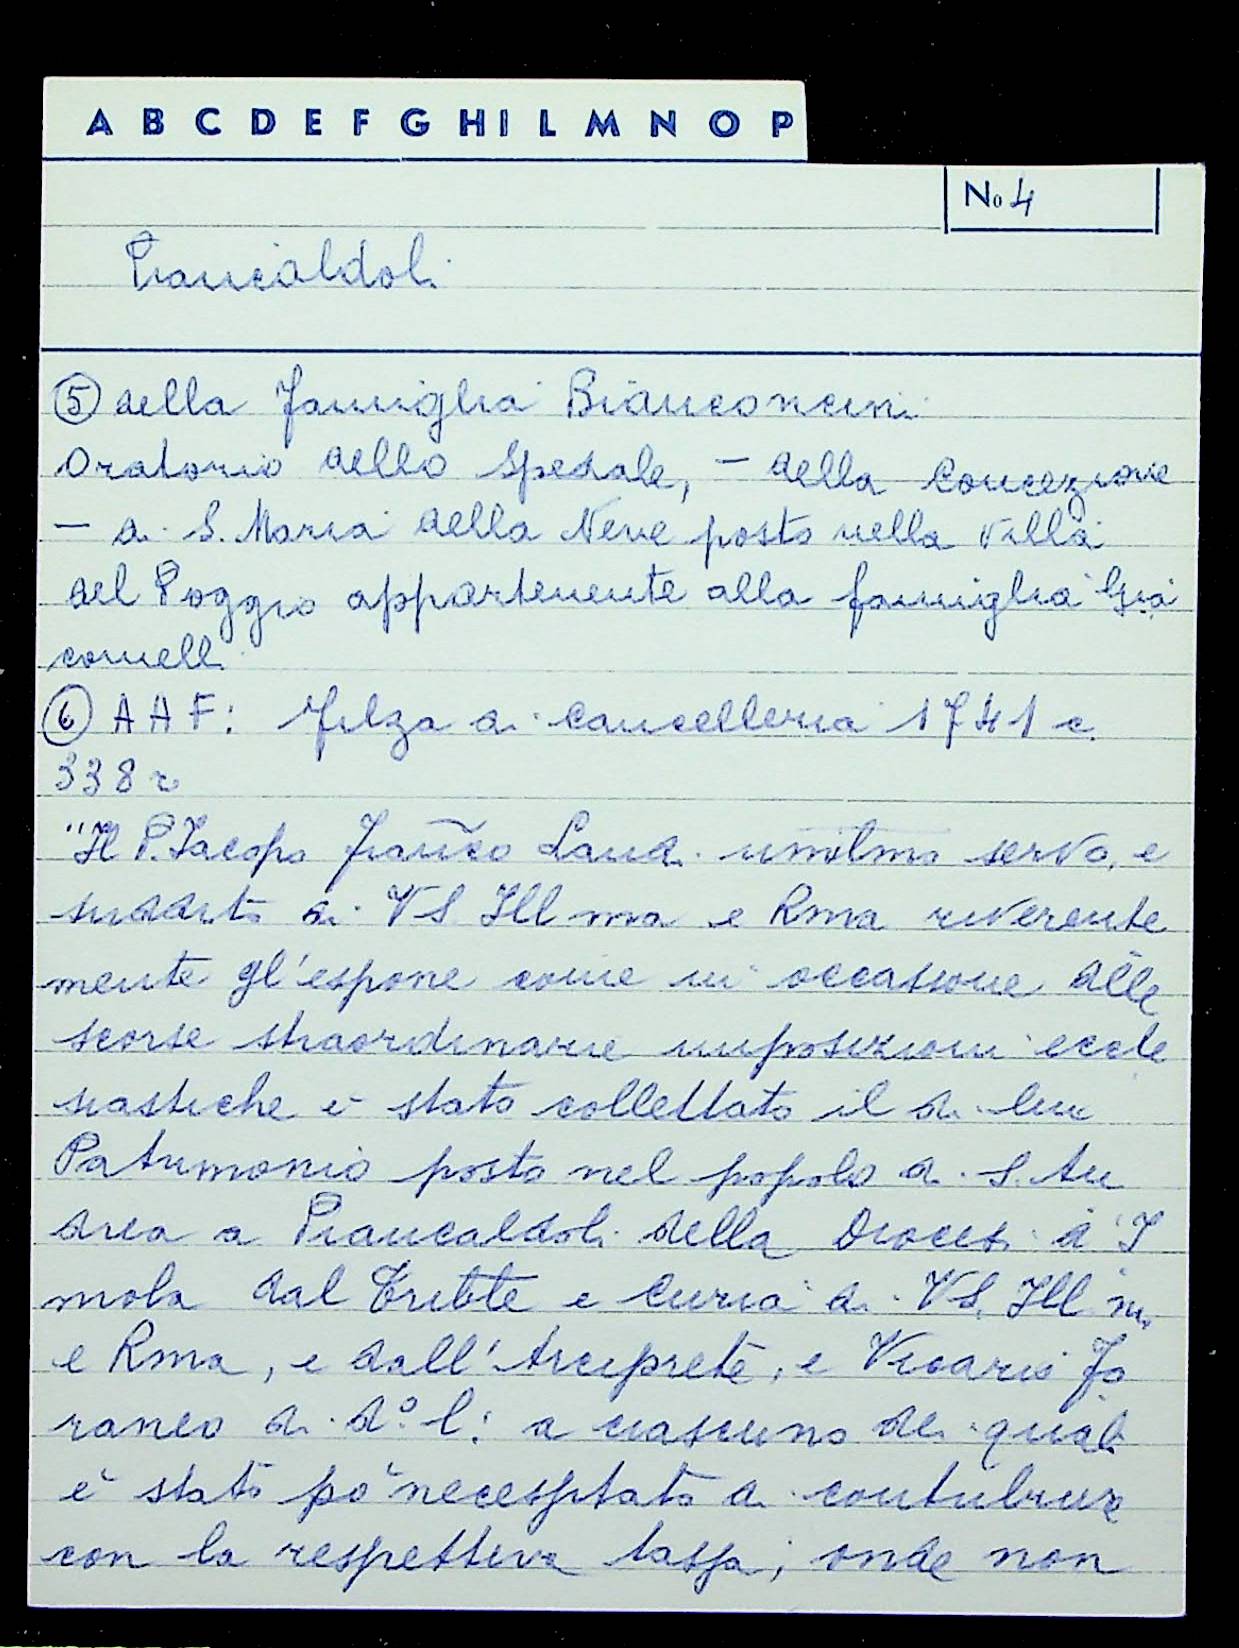 A B C D E F G H I L M N O P
No 4
Piancaldoli
⑤ della famiglia Bianconcini
Oratorio dello Spedale, - della Concezione
- di S. Maria della Neve posto nella Villa
del Poggio appartenente alla famiglia Gia
comelli
⑥ A A F: Filza di cancelleria 1741 c.
338 r
"Il P. Jacopo Franco Landi umilmo servo, e
suddito di VS Ill ma e Rma riverente
mente gl'espone come in occasione delle
scorse straordinarie imposizioni eccle
siastiche è stato collettato il di lui
Patrimonio posto nel popolo di S. An
drea a Piancaldoli della Diocesi d'I
mola dal Tribte e Curia di VS. Ill m.
e Rma, e dall'Arciprete, e Vicario Fo
raneo di d.° l: a ciascuno dei quali
è stato po necessitato a contribuire
con la respettiva tassa, onde non